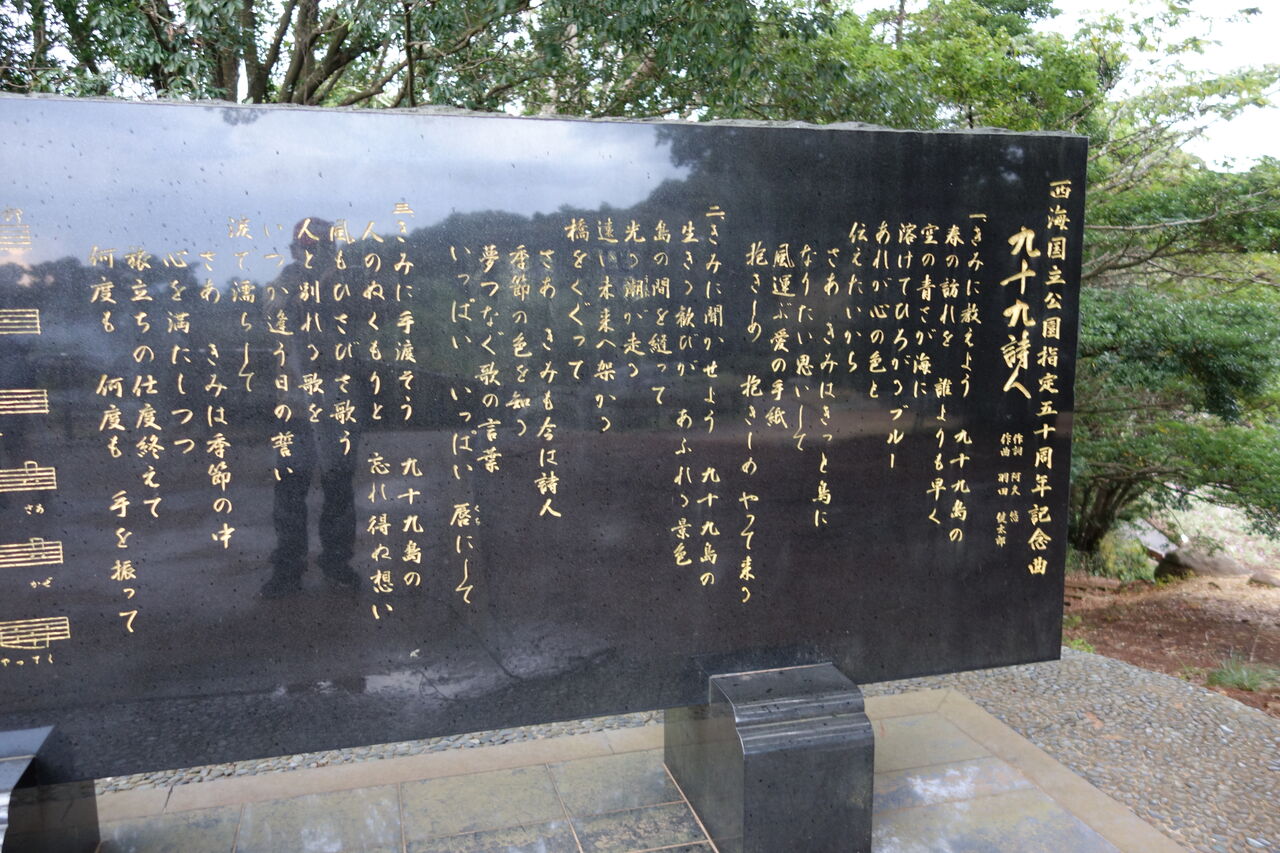 西海国立公園指定五十周年記念曲
九十九詩人
作詞 阿久 悠
作曲 羽田 健太郎
一、きみに教えよう 九十九島の
春の訪れを 誰よりも早く
空の青さが海に
溶けてひろがるブルー
あれが心の色と
伝えたいから
さあ きみはきっと鳥に
なりたい思いして
風運ぶ愛の手紙
抱きしめ 抱きしめ やって来る
二、きみに聞かせよう 九十九島の
生きる歓びが あふれる景色
島の間を縫って
光る潮が走る
遠い未来へ架かる
橋をくぐって
さあ きみも今は詩人
季節の色を知る
夢つなぐ歌の言葉
いっぱい いっぱい 唇にして
くち
三、きみに手渡そう 九十九島の
人のぬくもりと 忘れ得ぬ想い
風もひさびさ歌う
人と別れる歌を
いつか逢う日の誓い
涙で濡らして
さあ きみは季節の中
心を満たしつつ
旅立ちの仕度終えて
何度も 何度も 手を振って
さあ
かぜ
やってく